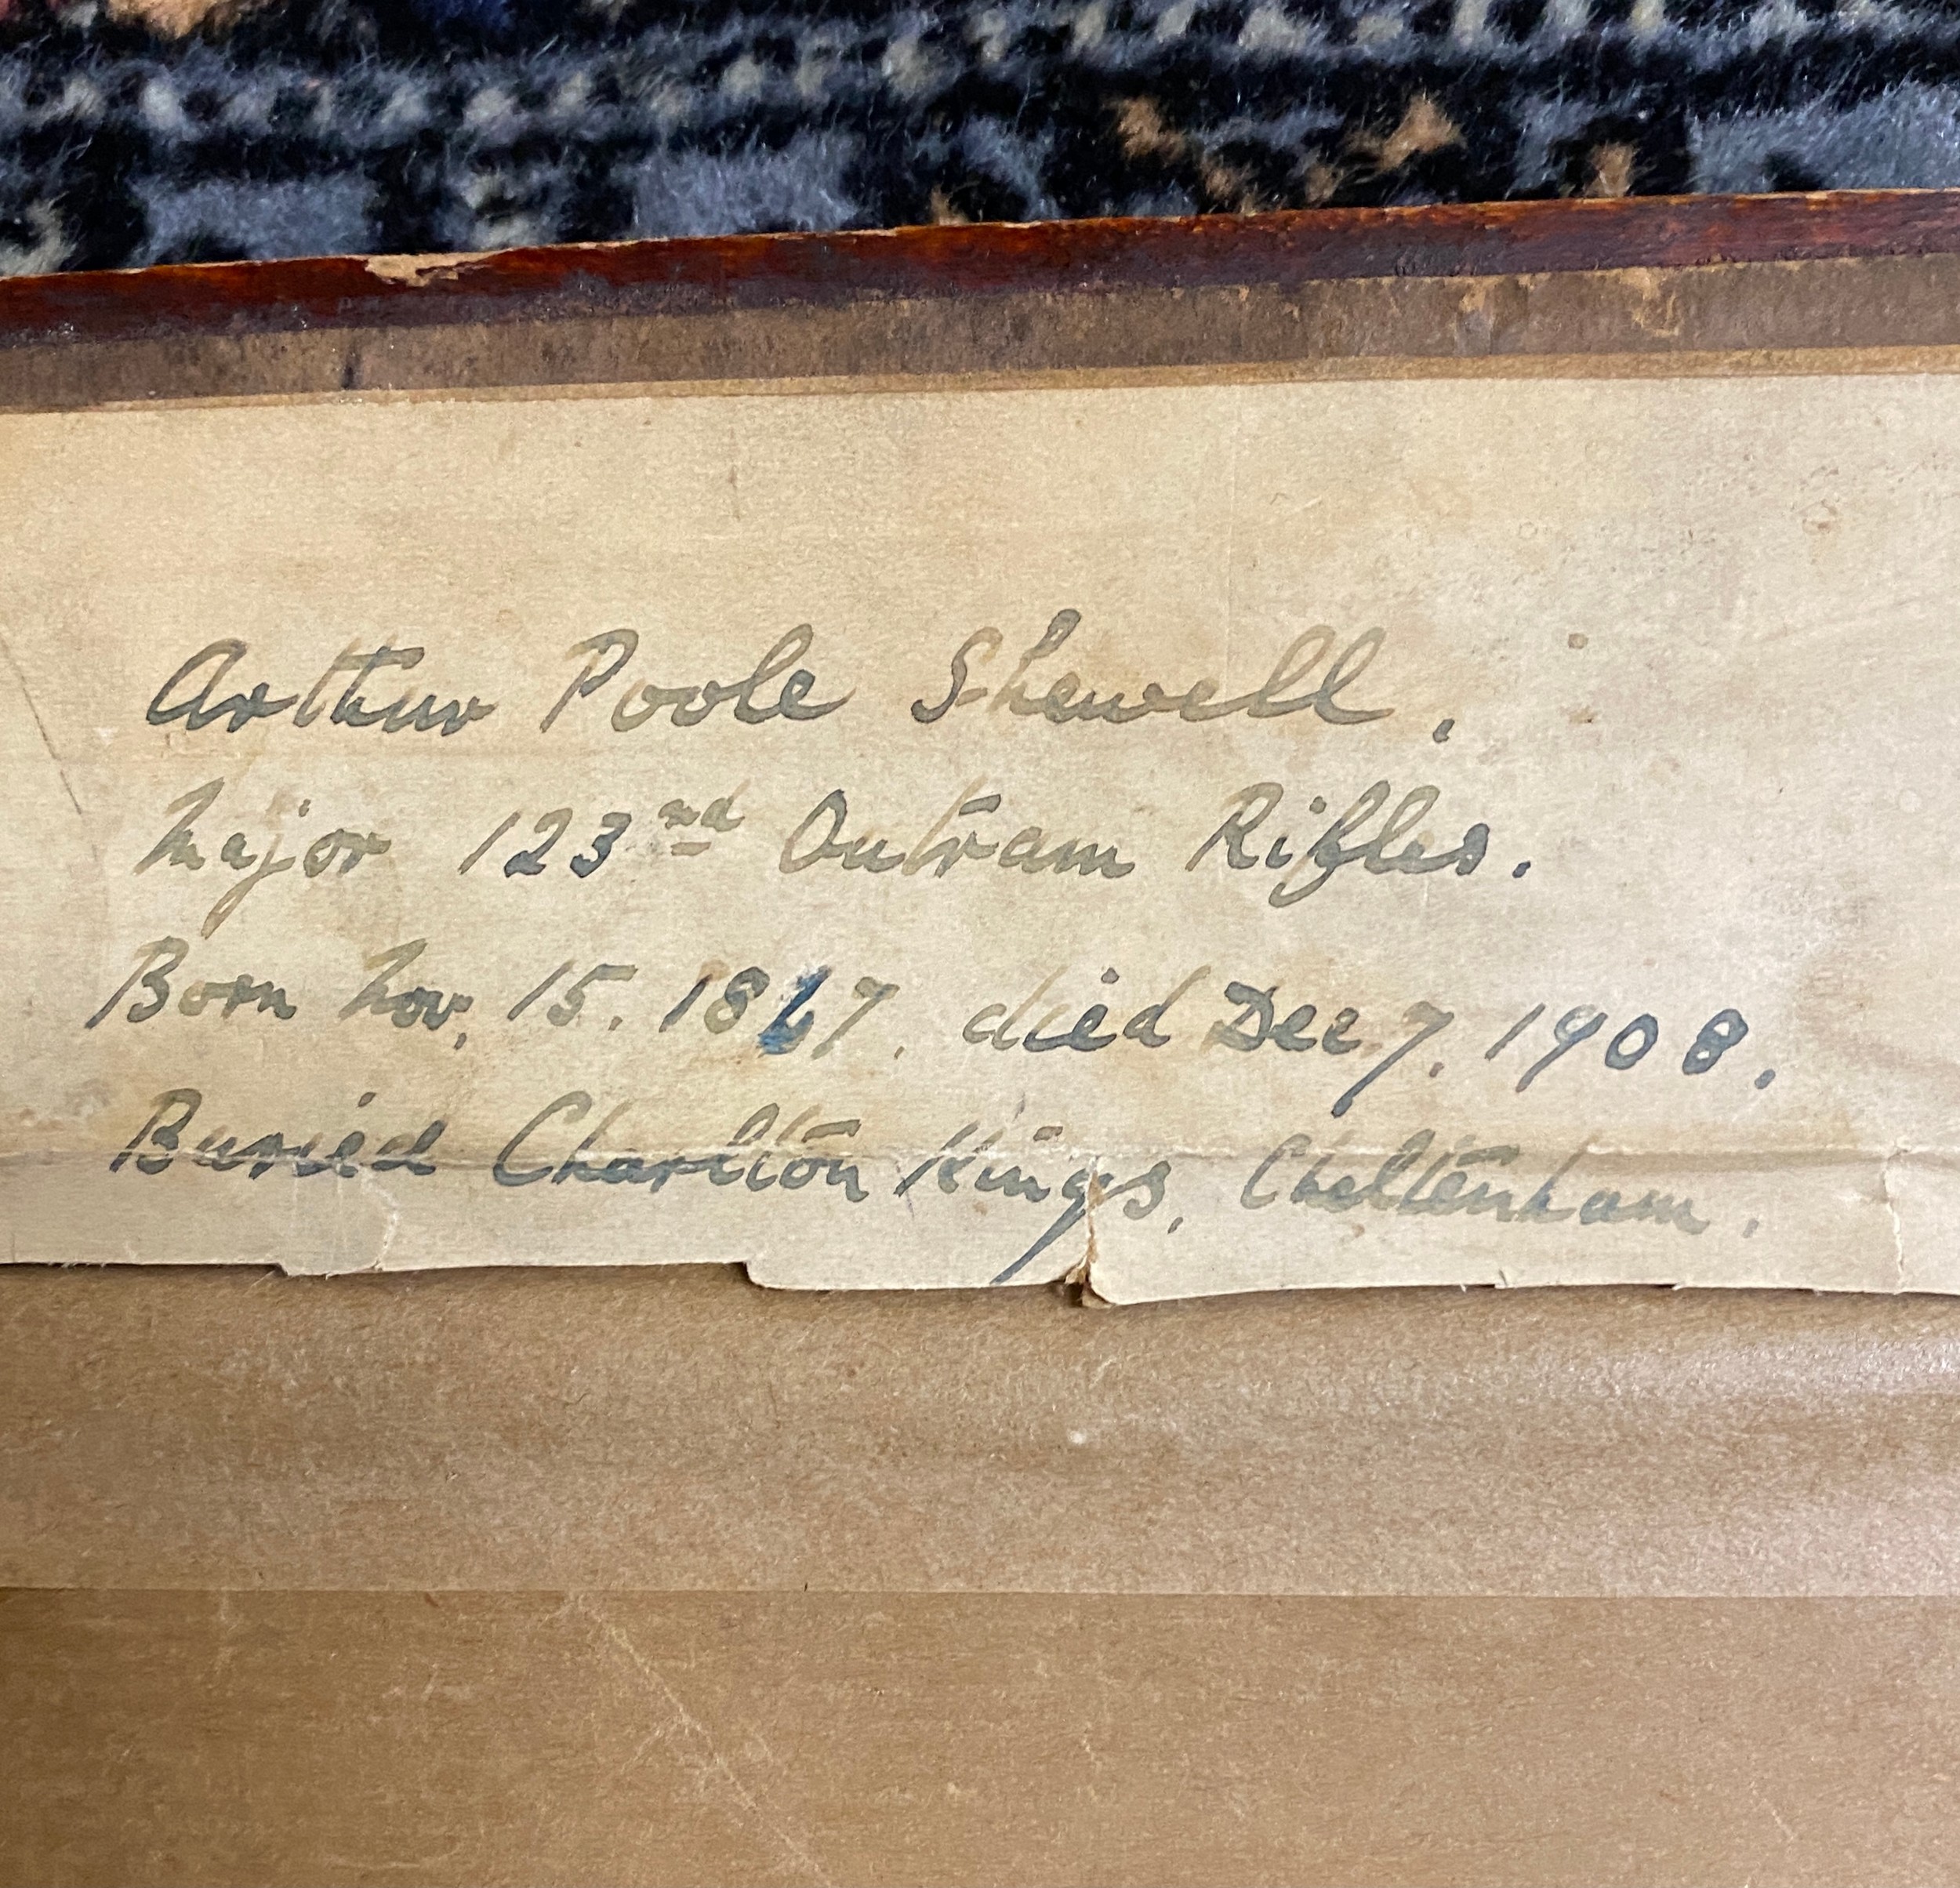 Arthur Poole Shewell.
Major 123rd Outram Rifles.
Born Nov. 15. 1867. died Dec 7. 1908.
Buried Charlton Kings, Cheltenham.